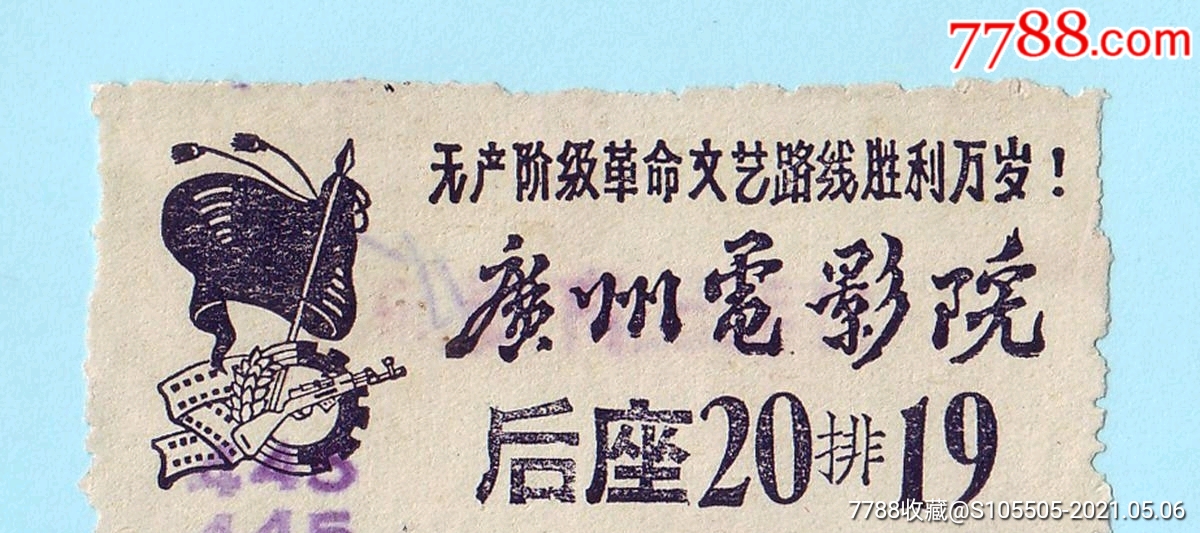 7788.com
无产阶级革命文艺路线胜利万岁！
廣州電影院
后座20排19
445
445
7788收藏@S105505-2021.05.06